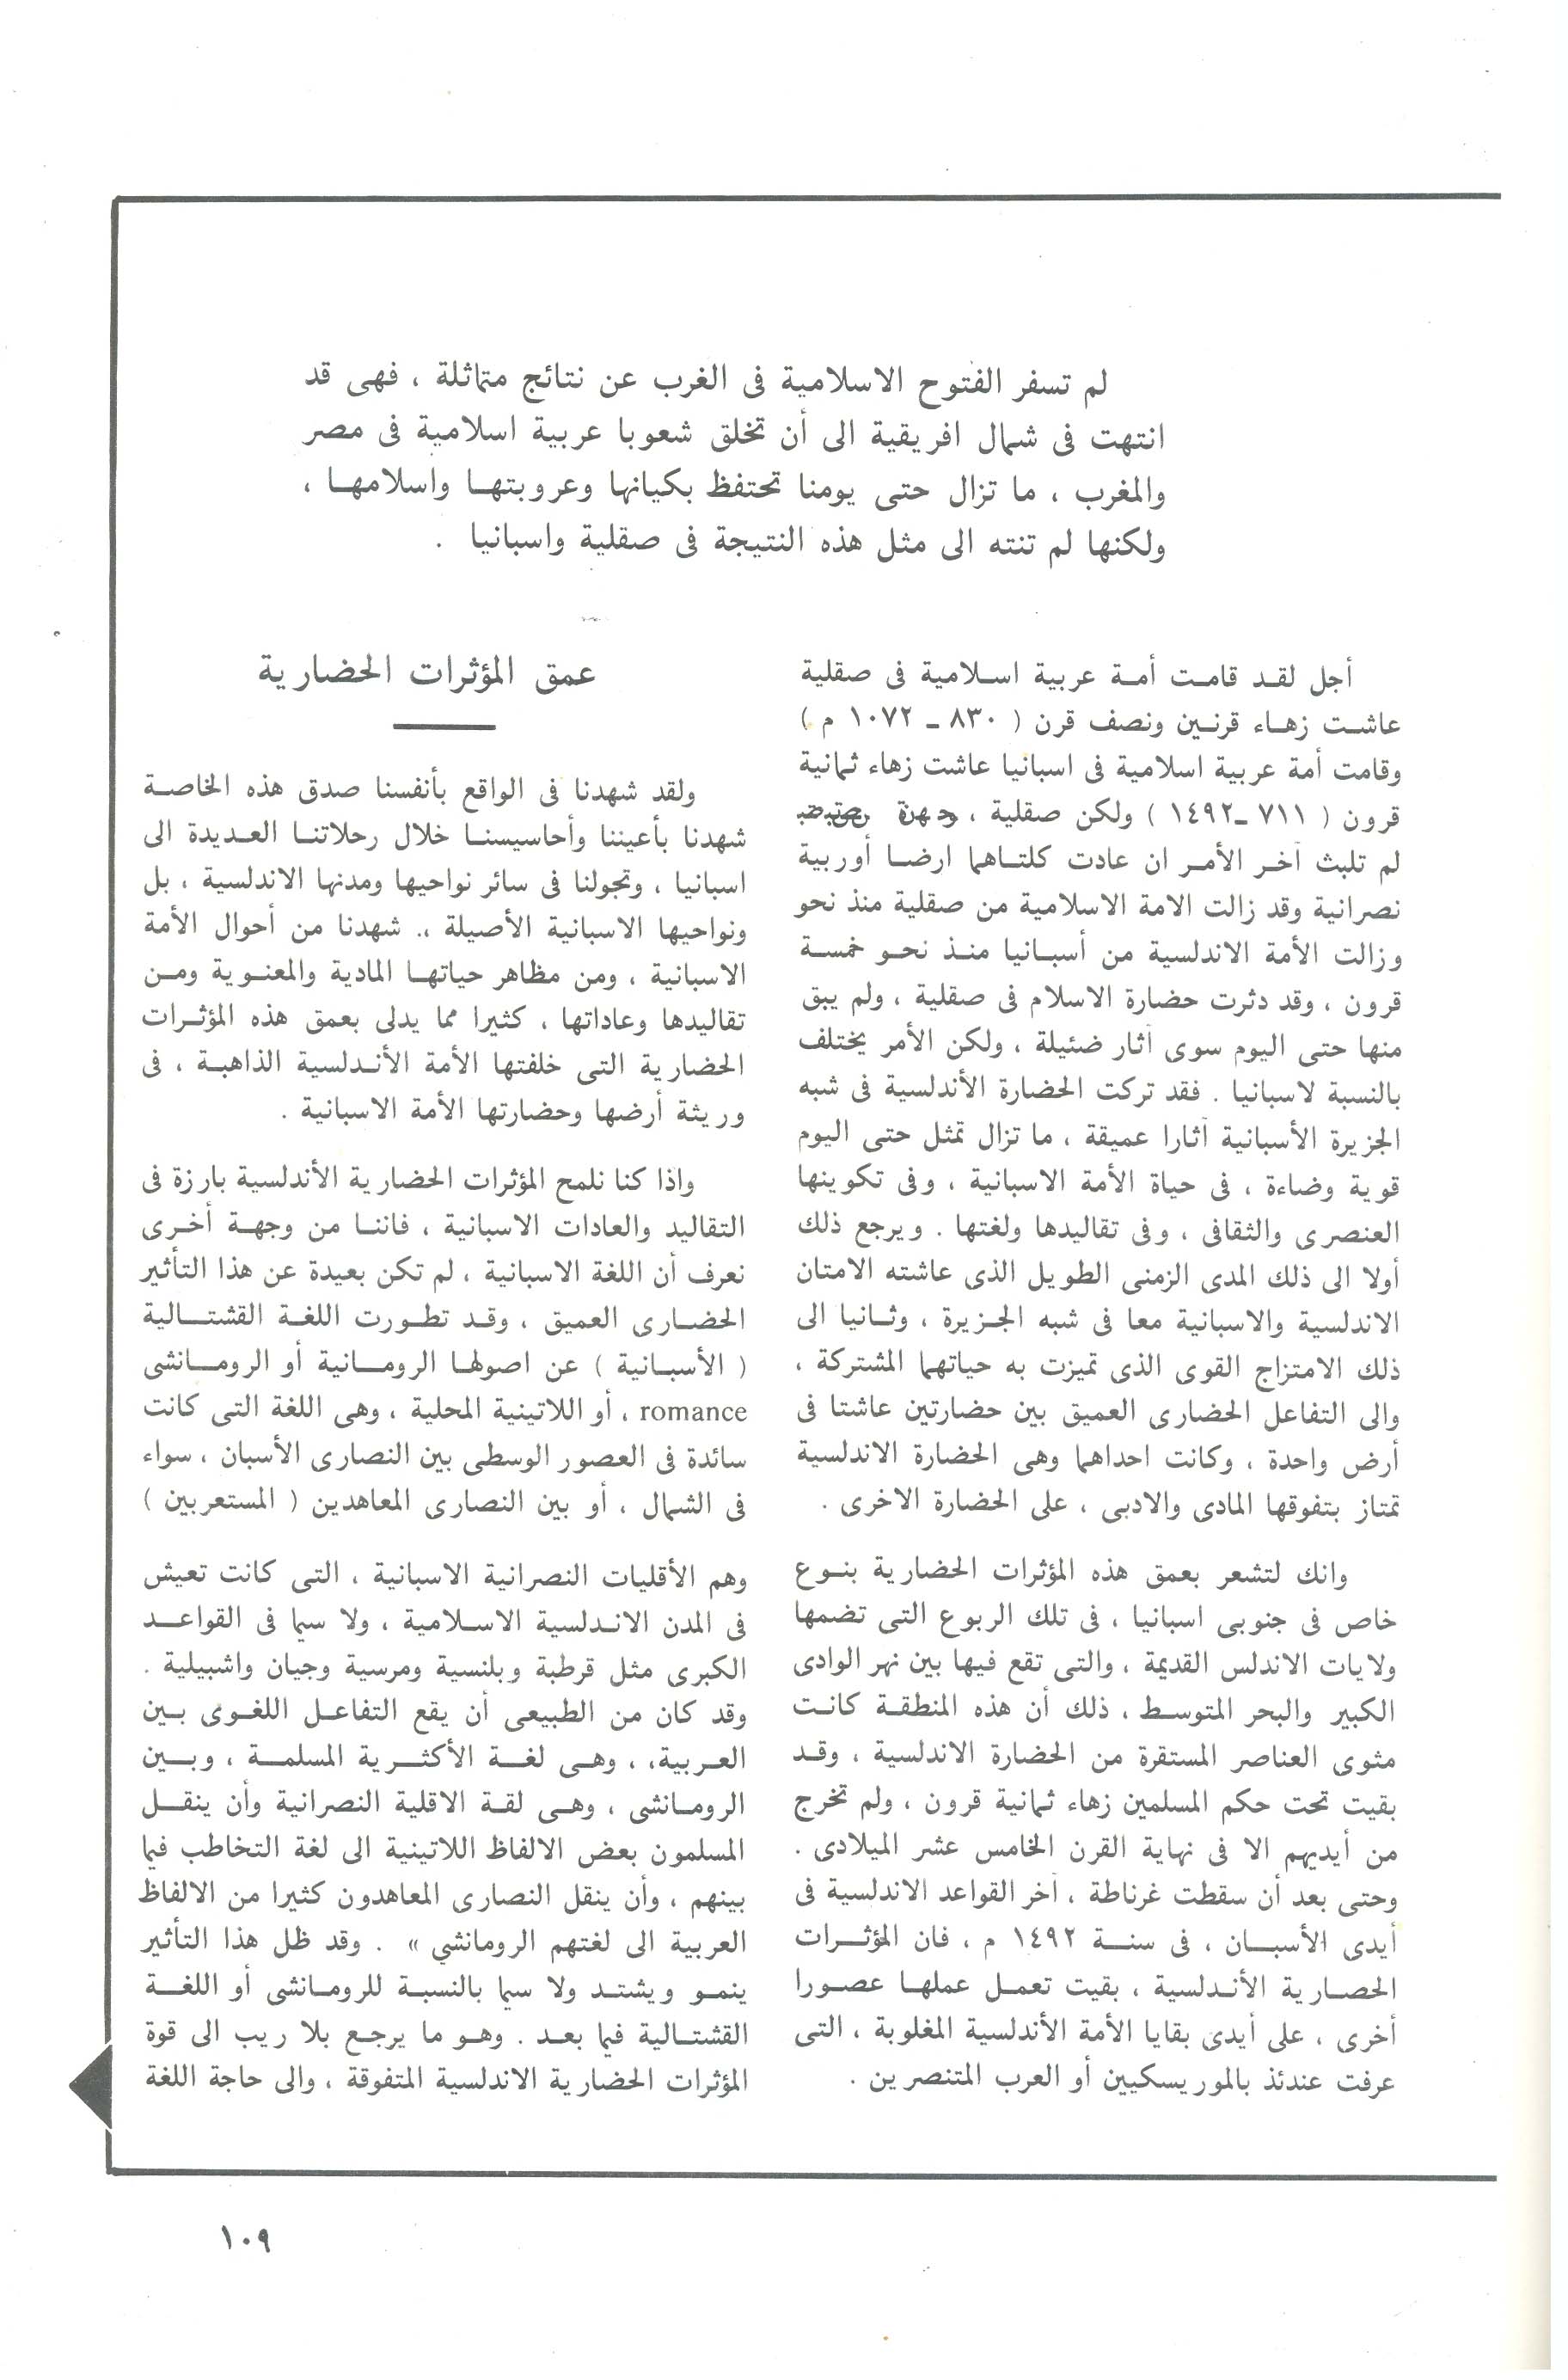 لم تسفر الفتوح الاسلامية فى الغرب عن نتائج متماثلة ، فهى قد
انتهت فى شمال افريقية الى أن تخلق شعوبا عربية اسلامية فى مصر
والمغرب ، ما تزال حتى يومنا تحتفظ بكيانها وعروبتها واسلامها ،
ولكنها لم تنته الى مثل هذه النتيجة فى صقلية واسبانيا .
أجل لقد قامت أمة عربية اسلامية فى صقلية
عاشت زهاء قرنين ونصف قرن ( ٨٣٠ ــ ١٠٧٢ م )
وقامت أمة عربية اسلامية فى اسبانيا عاشت زهاء ثمانية
قرون ( ٧١١ ــ ١٤٩٢ ) ولكن صقلية ،
لم تلبث آخر الأمر ان عادت كلتاهما ارضا أوربية
نصرانية وقد زالت الامة الاسلامية من صقلية منذ نحو
وزالت الأمة الاندلسية من أسبانيا منذ نحو خمسة
قرون ، وقد دثرت حضارة الاسلام فى صقلية ، ولم يبق
منها حتى اليوم سوى آثار ضئيلة ، ولكن الأمر يختلف
بالنسبة لاسبانيا . فقد تركت الحضارة الأندلسية فى شبه
الجزيرة الأسبانية آثارا عميقة ، ما تزال تمثل حتى اليوم
قوية وضاءة ، فى حياة الأمة الاسبانية ، وفى تكوينها
العنصرى والثقافى ، وفى تقاليدها ولغتها . ويرجع ذلك
أولا الى ذلك المدى الزمنى الطويل الذى عاشته الامتان
الاندلسية والاسبانية معا فى شبه الجزيرة ، وثانيا الى
ذلك الامتزاج القوى الذى تميزت به حياتهما المشتركة ،
والى التفاعل الحضارى العميق بين حضارتين عاشتا فى
أرض واحدة ، وكانت احداهما وهى الحضارة الاندلسية
تمتاز بتفوقها المادى والادبى ، على الحضارة الاخرى .
وانك لتشعر بعمق هذه المؤثرات الحضارية بنوع
خاص فى جنوبى اسبانيا ، فى تلك الربوع التى تضمها
ولايات الاندلس القديمة ، والتى تقع فيها بين نهر الوادى
الكبير والبحر المتوسط ، ذلك أن هذه المنطقة كانت
مثوى العناصر المستقرة من الحضارة الاندلسية ، وقد
بقيت تحت حكم المسلمين زهاء ثمانية قرون ، ولم تخرج
من أيديهم الا فى نهاية القرن الخامس عشر الميلادى .
وحتى بعد أن سقطت غرناطة ، آخر القواعد الاندلسية فى
أيدى الأسبان ، فى سنة ١٤٩٢ م ، فان المؤثرات
الحصارية الأندلسية ، بقيت تعمل عملها عصورا
أخرى ، على أيدى بقايا الأمة الأندلسية المغلوبة ، التى
عرفت عندئذ بالموريسكيين أو العرب المتنصرين .
عمق المؤثرات الحضارية
ولقد شهدنا فى الواقع بأنفسنا صدق هذه الخاصة
شهدنا بأعيننا وأحاسيسنا خلال رحلاتنا العديدة الى
اسبانيا ، وتجولنا فى سائر نواحيها ومدنها الاندلسية ، بل
ونواحيها الاسبانية الأصيلة ،. شهدنا من أحوال الأمة
الاسبانية ، ومن مظاهر حياتها المادية والمعنوية ومن
تقاليدها وعاداتها ، كثيرا مما يدلى بعمق هذه المؤثرات
الحضارية التى خلفتها الأمة الأندلسية الذاهبة ، فى
وريثة أرضها وحضارتها الأمة الاسبانية .
واذا كنا نلمح المؤثرات الحضارية الأندلسية بارزة فى
التقاليد والعادات الاسبانية ، فاننا من وجهة أخرى
نعرف أن اللغة الاسبانية ، لم تكن بعيدة عن هذا التأثير
الحضارى العميق ، وقد تطورت اللغة القشتالية
( الأسبانية ) عن اصولها الرومانية أو الرومانشى
romance ، أو اللاتينية المحلية ، وهى اللغة التى كانت
سائدة فى العصور الوسطى بين النصارى الأسبان ، سواء
فى الشمال ، أو بين النصارى المعاهدين ( المستعربين )
وهم الأقليات النصرانية الاسبانية ، التى كانت تعيش
فى المدن الاندلسية الاسلامية ، ولا سيما فى القواعد
الكبرى مثل قرطبة وبلنسية ومرسية وجيان واشبيلية .
وقد كان من الطبيعى أن يقع التفاعل اللغوى بين
العربية، ، وهى لغة الأكثرية المسلمة ، وبين
الرومانشى ، وهى لقة الاقلية النصرانية وأن ينقل
المسلمون بعض الالفاظ اللاتينية الى لغة التخاطب فيما
بينهم ، وأن ينقل النصارى المعاهدون كثيرا من الالفاظ
العربية الى لغتهم الرومانشي » . وقد ظل هذا التأثير
ينمو ويشتد ولا سيما بالنسبة للرومانشى أو اللغة
القشتالية فيما بعد . وهو ما يرجع بلا ريب الى قوة
المؤثرات الحضارية الاندلسية المتفوقة ، والى حاجة اللغة
١٠٩